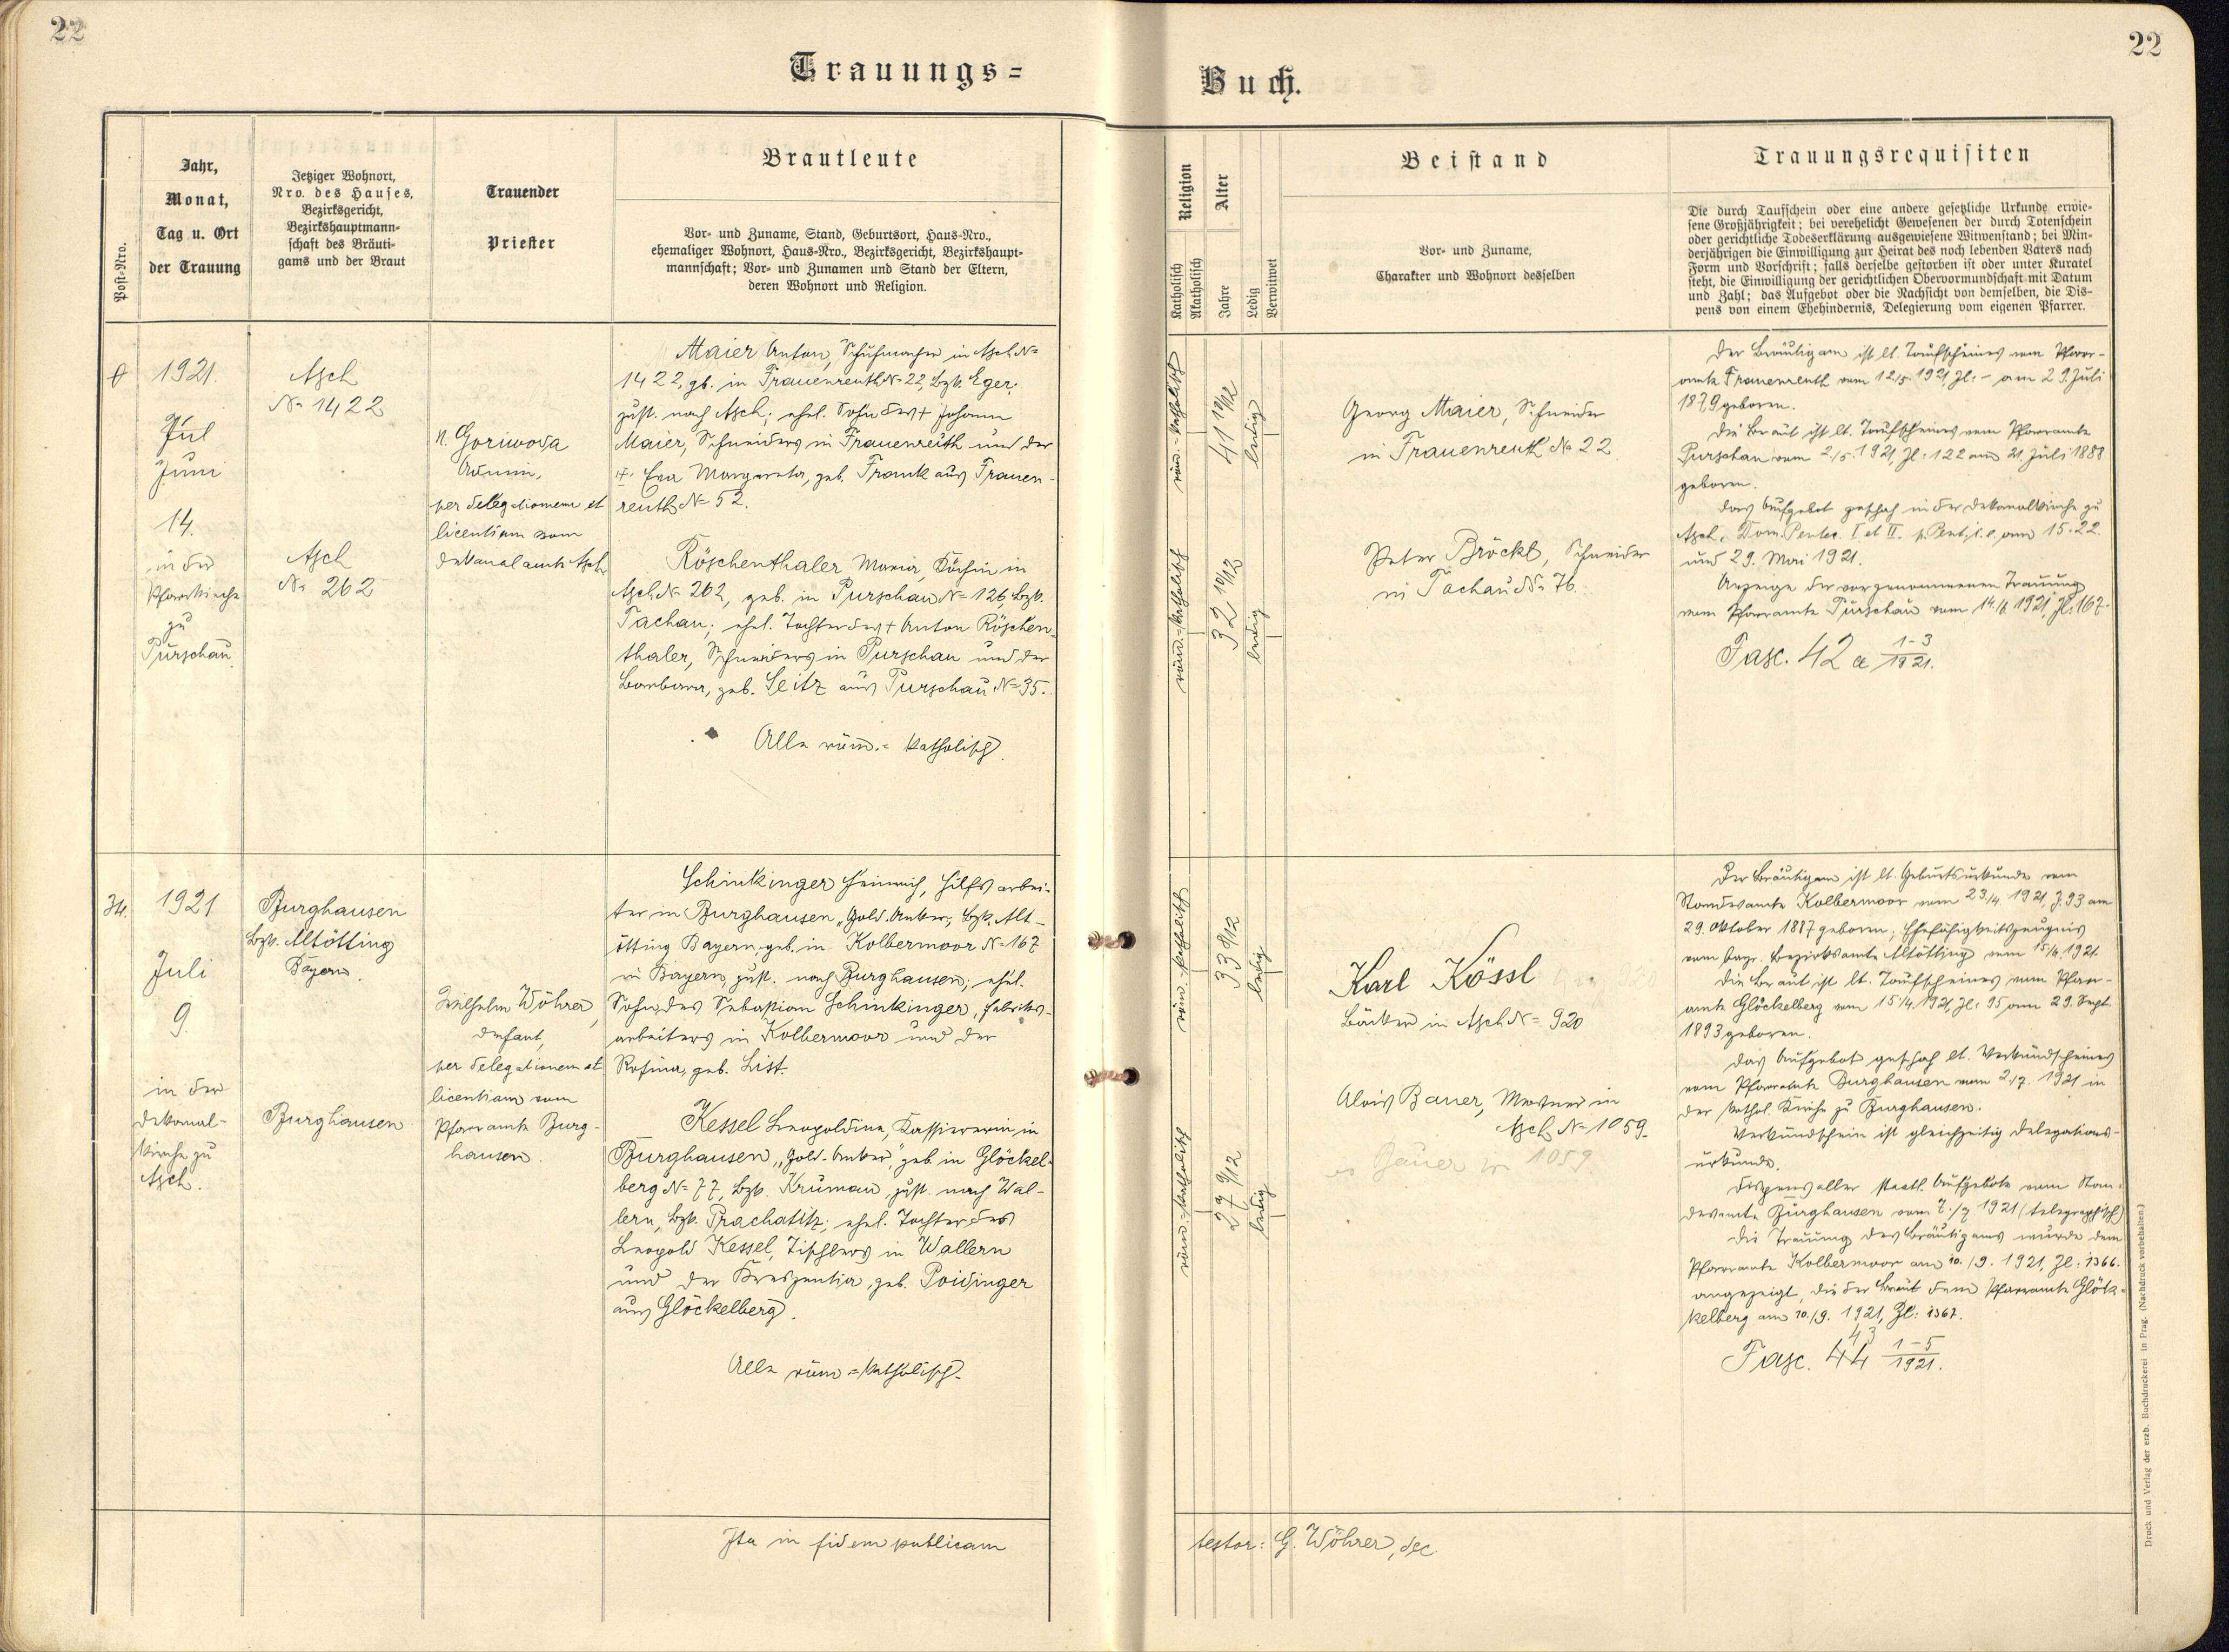 22
22
Trauungs=
Buch.
Post-Nro.
Jahr,
Monat,
Tag u. Ort
der Trauung
Jetziger Wohnort,
Nro. des Hauses,
Bezirksgericht,
Bezirkshauptmann-
schaft des Bräuti-
gams und der Braut
Trauender
Priester
Brautleute
Vor- und Zuname, Stand, Geburtsort, Haus-Nro.,
ehemaliger Wohnort, Haus-Nro., Bezirksgericht, Bezirkshaupt-
mannschaft; Vor- und Zunamen und Stand der Eltern,
deren Wohnort und Religion.
Religion
Katholisch
Akatholisch
Alter
Jahre
Ledig
Verwitwet
Beistand
Vor- und Zuname,
Charakter und Wohnort desselben
Trauungsrequisiten
Die durch Taufschein oder eine andere gesetzliche Urkunde erwie-
sene Großjährigkeit; bei verehelicht Gewesenen der durch Totenschein
oder gerichtliche Todeserklärung ausgewiesene Witwenstand; bei Min-
derjährigen die Einwilligung zur Heirat des noch lebenden Vaters nach
Form und Vorschrift; falls derselbe gestorben ist oder unter Kuratel
steht, die Einwilligung der gerichtlichen Obervormundschaft mit Datum
und Zahl; das Aufgebot oder die Nachsicht von demselben, die Dis-
pens von einem Ehehindernis, Delegierung vom eigenen Pfarrer.
0
1921.
Jul
Juni
14.
in der
Pfarrkirche
zu
Purschau.
Asch
No 1422
Asch
No 262
Goriwoda
Admin.
per delegationem et
licentiam vom
Dekanalamte Asch.
Maier Anton, Schuhmacher in Asch No
1422, gb. in Frauenreuth No 22, Bzk. Eger;
zust. nach Asch; ehel. Sohn des + Johann
Maier, Schneiders in Frauenreuth und der
+ Eva Margareta, geb. Frank aus Frauen-
reuth No 52.
Röschenthaler Maria, Köchin in
Asch No 262, geb. in Purschau No 126, Bzk.
Tachau; ehel. Tochter des + Anton Röschen-
thaler, Schneiders in Purschau und der
Barbara, geb. Seitz aus Purschau No 35.
Alle röm.= katholisch.
röm.-katholisch
41 10/12
ledig
röm.=katholisch
32 10/12
ledig
Georg Maier, Schneider
in Frauenreuth No 22
Peter Bröckl, Schneider
in Tachau No 76.
Der Bräutigam ist lt. Taufscheines vom Pfarr-
amte Frauenreuth vom 12/5. 1921, Zl: - am 29. Juli
1879 geboren.
Die Braut ist lt. Taufscheines vom Pfarramte
Purschau vom 2./5. 1921, Zl: 122 am 21. Juli 1888
geboren.
Das Aufgebot geschah in der Dekanalkirche zu
Asch, Dom. Pentec. I et II. p. Pent., i. e. am 15. 22.
und 29. Mai 1921.
Anzeige der vorgenommenen Trauung
vom Pfarramte Purschau vom 14./6 1921, Zl: 167.
Fasc. 42 a 1-3/1921.
34.
1921
Juli
9.
in der
Dekanal-
kirche zu
Asch.
Burghausen
Bzk. Altötting
Bayern.
Burghausen
Wilhelm Wöhrer,
Dechant,
per delegationem et
licentiam vom
Pfarramte Burg-
hausen.
Schinkinger Heinrich, Hilfsarbei-
ter in Burghausen „Gold. Anker“, Bzk. Alt-
ötting Bayern, geb. in Kolbermoor No 167
in Bayern, zust. nach Burghausen; ehel.
Sohn des Sebastian Schinkinger, Fabriks-
arbeiters in Kolbermoor und der
Rosina, geb. List.
Kessel Leopoldine, Kassiererin in
Burghausen „Gold. Anker“, geb. in Glöckel-
berg No 77, Bzk. Krumau, zust. nach Wal-
lern, Bzk. Prachatitz; ehel. Tochter des
Leopold Kessel, Tischlers in Wallern
und der Kreszentia, geb. Poidinger
aus Glöckelberg.
Alle röm=katholisch.
röm.-katholisch
33 8/12
ledig
röm.=katholisch
27 9/12
ledig
Karl Kössl
Bäcker in Asch No 920
Alois Bauer, Mesner in
Asch No 1059.
Bauer 1059
Der Bräutigam ist lt. Geburtsurkunde vom
Standesamte Kolbermoor vom 23./4. 1921, Z. 93 am
29. Oktober 1887 geboren; Ehefähigkeitszeugnis
vom bayr. Bezirksamte Altötting vom 15/6. 1921.
Die Braut ist lt. Taufscheines vom Pfarr-
amte Glöckelberg vom 15/4. 1921, Zl: 95 am 29. Sept.
1893 geboren.
Das Aufgebot geschah lt. Verkündscheines
vom Pfarramte Burghausen vom 2./7. 1921 in
der kathol. Kirche zu Burghausen.
Verkündschein ist gleichzeitig Delegations-
urkunde.
Dispens aller staatl. Aufgebote vom Stan-
desamte Burghausen vom 7./7. 1921 (telegraphisch)
Die Trauung des Bräutigams wurde dem
Pfarramte Kolbermoor am 10./9. 1921, Zl: 1366.
angezeigt, die der Braut dem Pfarramte Glök-
kelberg am 10./9. 1921, Zl: 1367.
43
Fasc. 44 1-5/1921.
Ita in fidem publicam
testor: G. Wöhrer, dec.
Druck und Verlag der erzb. Buchdruckerei in Prag. (Nachdruck vorbehalten.)